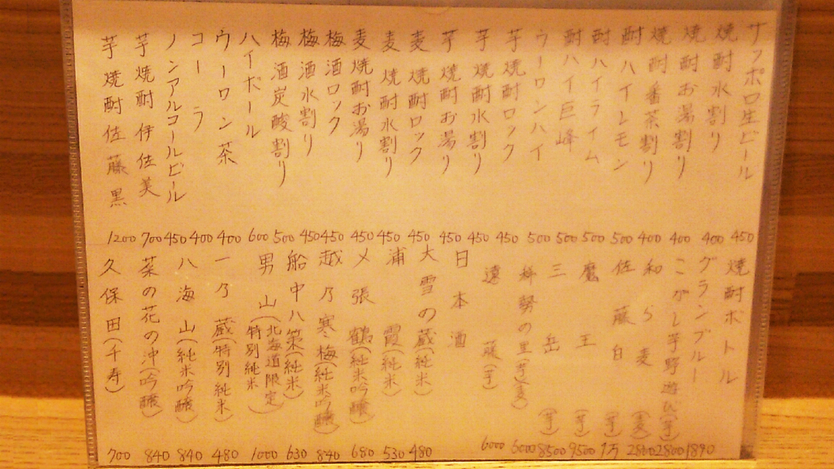 サッポロ生ビール 450
焼酎水割り 400
焼酎お湯割り 400
焼酎番茶割り 400
酎ハイレモン 500
酎ハイライム 500
酎ハイ巨峰 500
ウーロンハイ 500
芋焼酎ロック 450
芋焼酎水割り 450
芋焼酎お湯り 450
麦焼酎ロック 450
麦焼酎水割り 450
麦焼酎お湯り 450
梅酒ロック 450
梅酒水割り 450
梅酒炭酸割り 500
ハイボール 600
ウーロン茶 400
コーラ 400
ノンアルコールビール 450
芋焼酎 伊佐美 700
芋焼酎 佐藤黒 1200
焼酎ボトル
グランブルー 1890
こがし芋野遊び(芋) 2800
和ら麦(麦) 2800
佐藤白(芋) 1万
魔王(芋) 9500
三岳(芋) 8500
の里 (麦) 6000
(芋) 6000
日本酒
大雪の蔵(純米) 480
浦霞(純米) 530
〆張鶴(純米吟醸) 680
越乃寒梅(純米吟醸) 840
船中八策(純米) 630
男山(北海道限定)
(特別純米) 1000
一乃蔵(特別純米) 480
八海山(純米吟醸) 840
菜の花の沖(吟醸) 840
久保田(千寿) 700